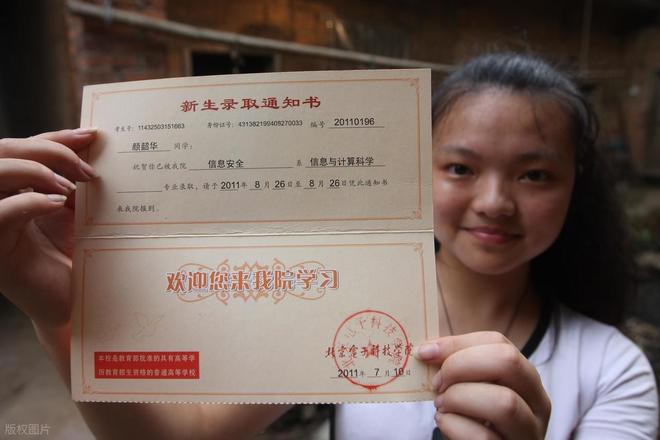 新生录取通知书
考生号：11432503151663 身份证号：431382199408270033 编号 20110196
颜韶华 同学：
祝贺你已被我院 信息安全 系 信息与计算科学
专业录取，请于 2011年 8 月 26 日至 8 月 26 日凭此通知书
来我院报到。
欢迎您来我院学习
本校是教育部批准的具有高等学
历教育招生资格的普通高等学校
北京电子科技学院
2011年 7 月 10 日
版权图片